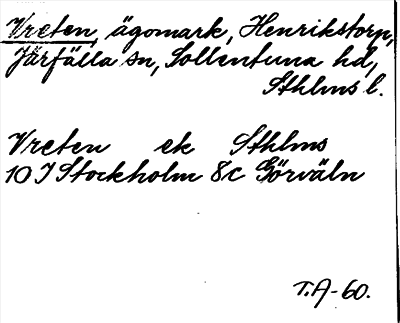 Vreten, ägomark, Henrikstorp,
Järfälla sn, Sollentuna hd,
Sthlms l.
Vreten ek Sthlms
10 I Stockholm 8c Görväln
T.A-60.